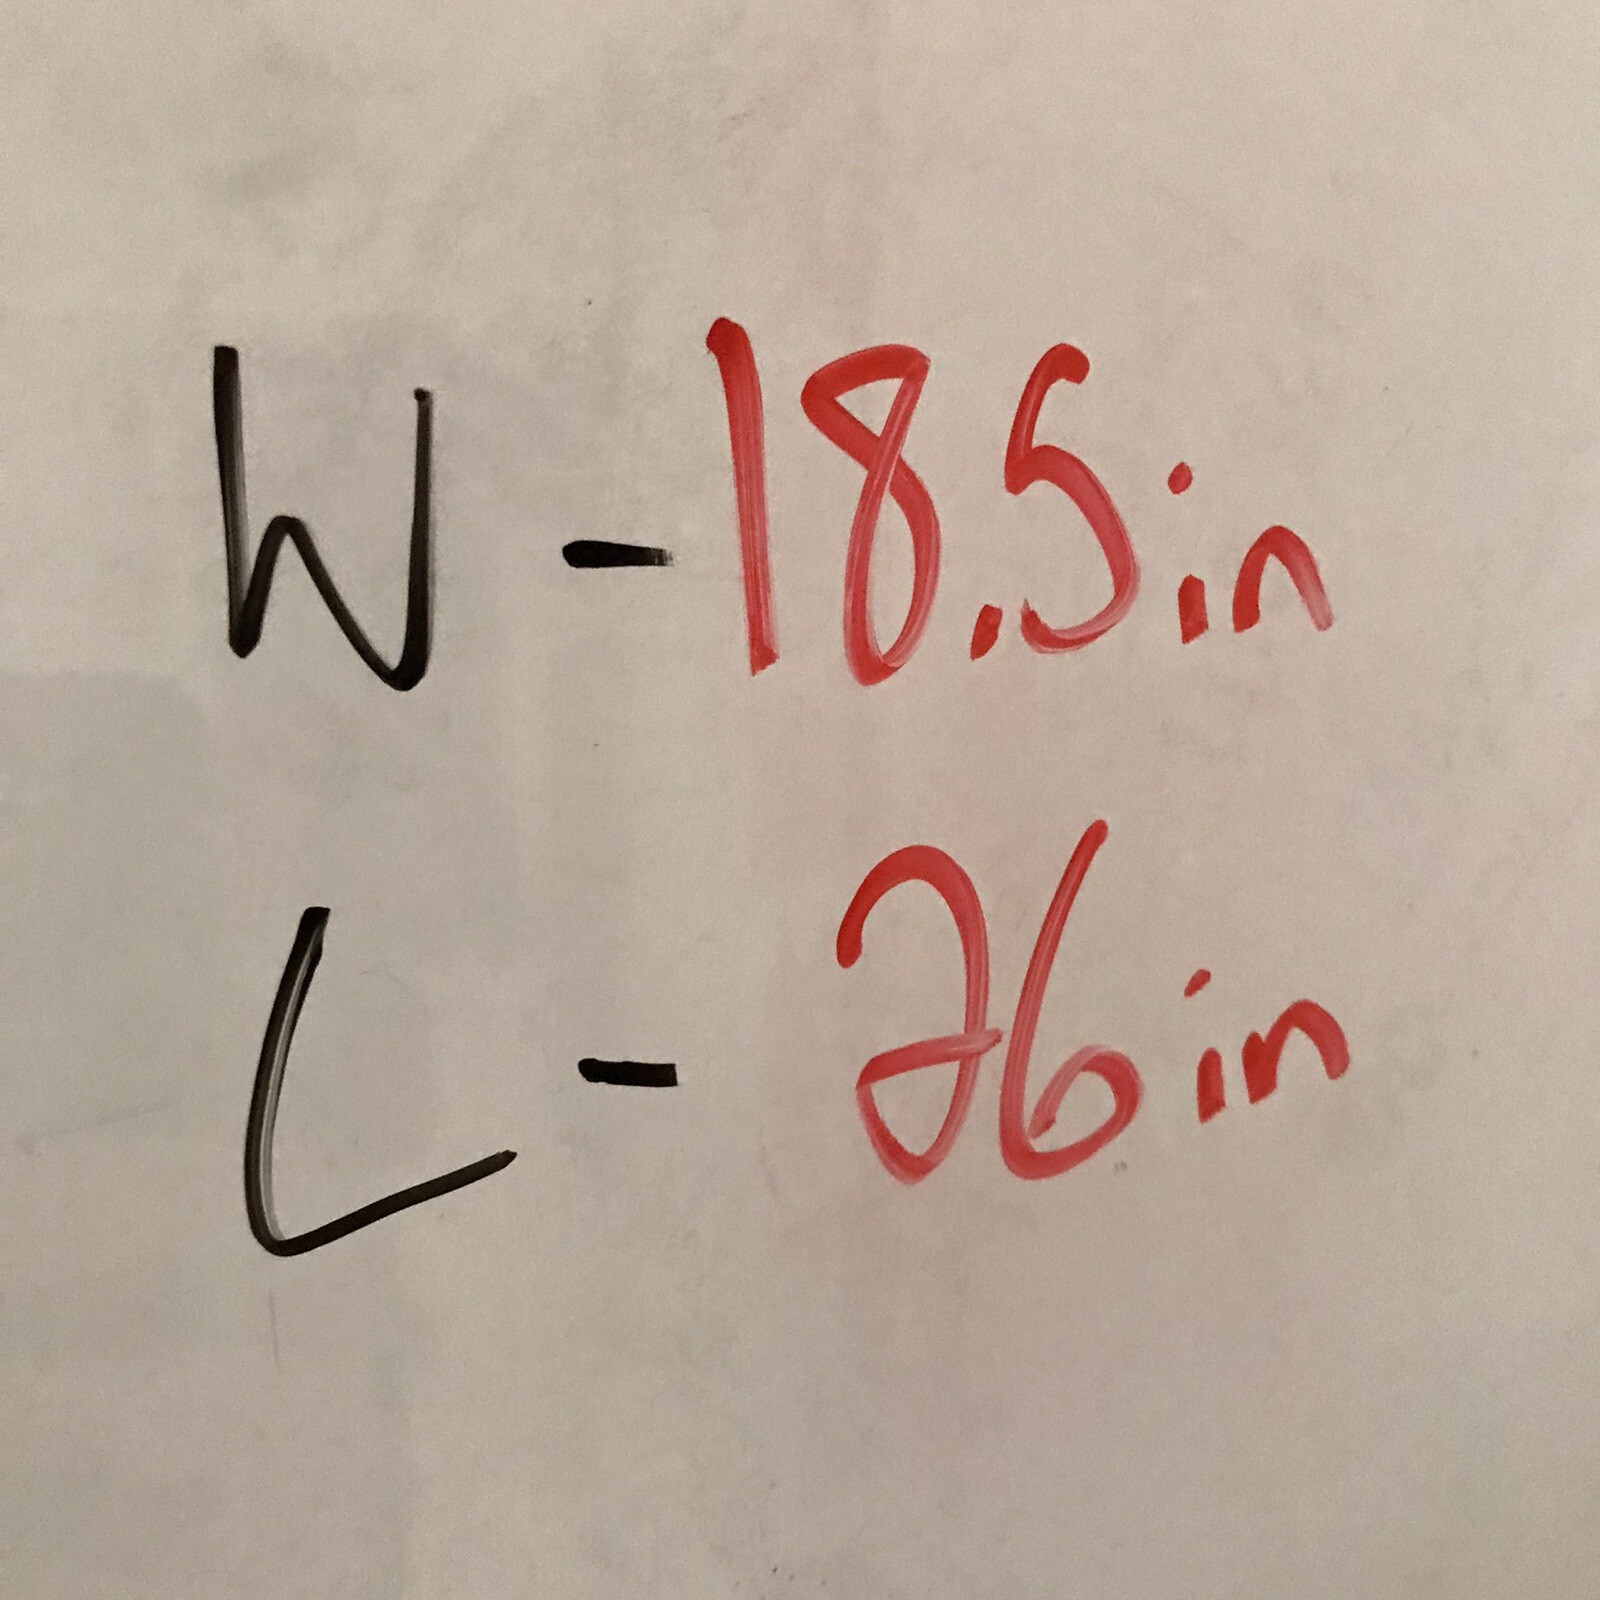 W - 18.5in
L - 26in